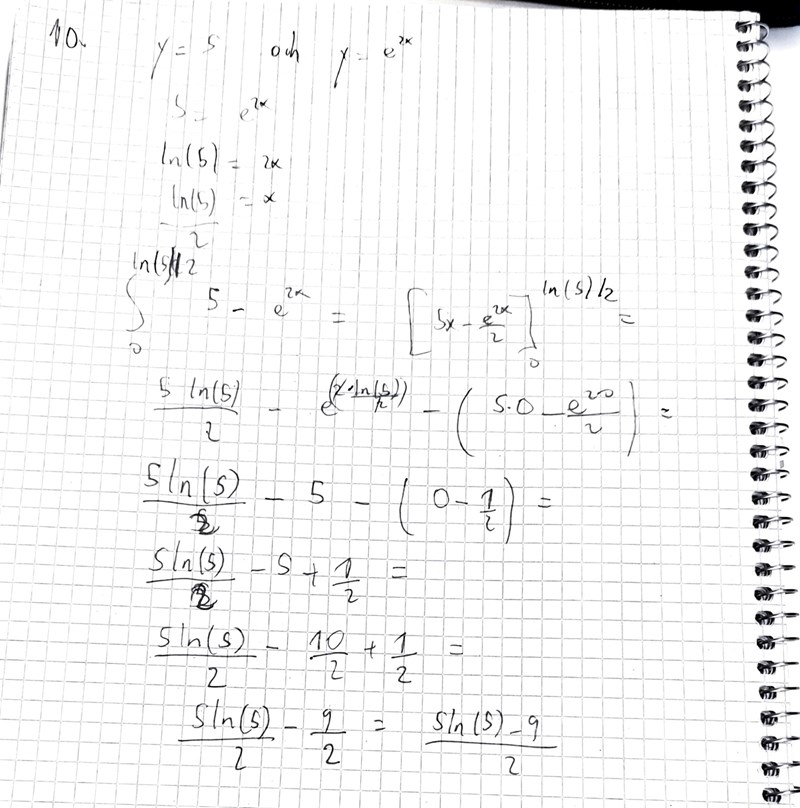 10. y = 5 och y = e^2x
5 = e^2x
ln(5) = 2x
ln(5)/2 = x
∫_0^ln(5)/2 5 - e^2x = [5x - e^2x/2]_0^ln(5)/2 =
5 ln(5)/2 - e^(2·ln(5)/2) - (5·0 - e^2·0/2) =
5 ln(5)/2 - 5 - (0 - 1/2) =
5 ln(5)/2 - 5 + 1/2 =
5 ln(5)/2 - 10/2 + 1/2 =
5 ln(5)/2 - 9/2 = 5 ln(5) - 9/2